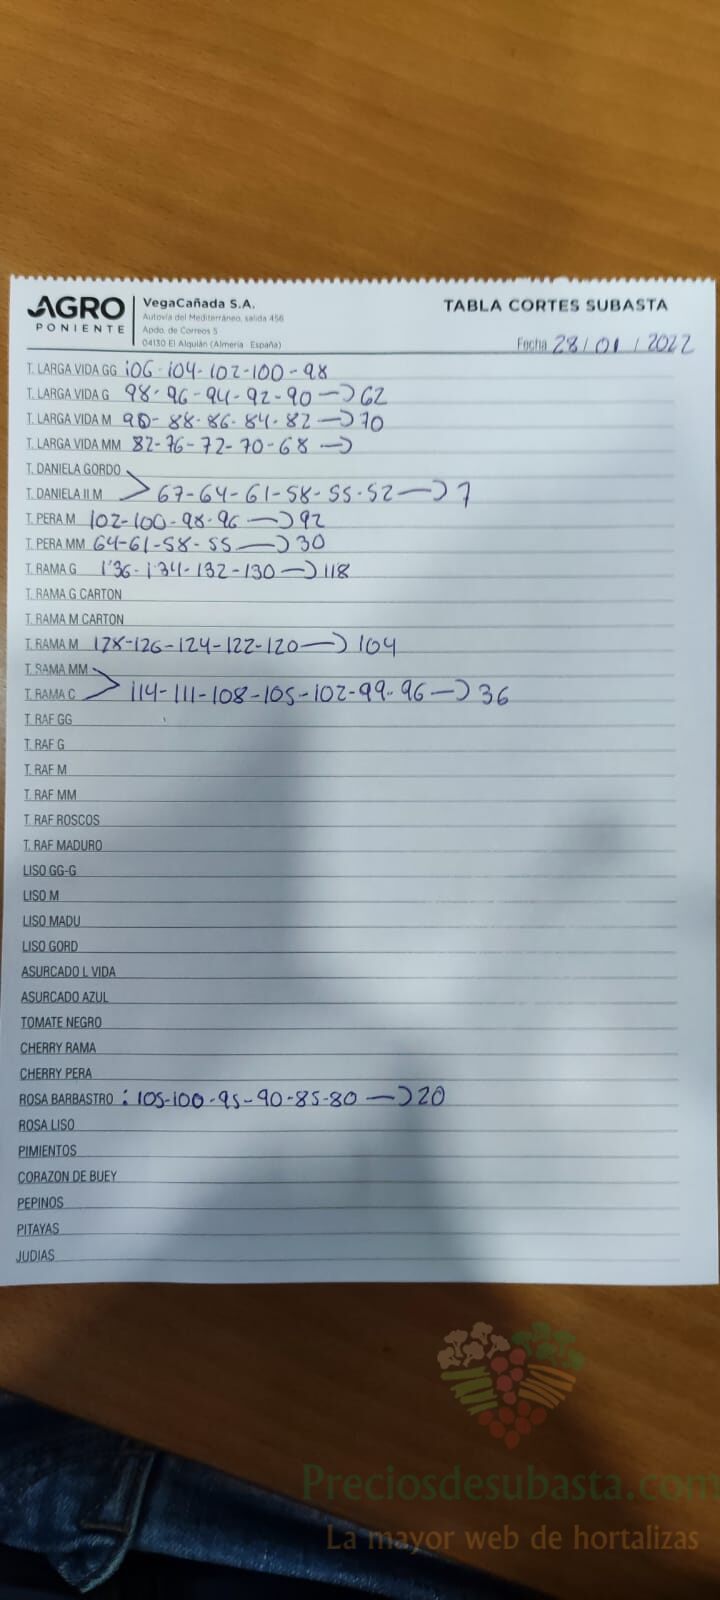 AGRO
PONIENTE
VegaCañada S.A.
Autovía del Mediterráneo, salida 456
Apdo. de Correos 5
04130 El Alquián (Almería · España)
TABLA CORTES SUBASTA
Fecha 28/01/2022
T. LARGA VIDA GG 106-104-102-100-98
T. LARGA VIDA G 98-96-94-92-90→62
T. LARGA VIDA M 90-88-86-84-82→70
T. LARGA VIDA MM 82-76-72-70-68→
T. DANIELA GORDO
T. DANIELA II M > 67-64-61-58-55-52→7
T. PERA M 102-100-98-96→92
T. PERA MM 64-61-58-55→30
T. RAMA G 1'36-1'34-132-130→118
T. RAMA G CARTON
T. RAMA M CARTON
T. RAMA M 128-126-124-122-120→104
T. RAMA MM
T. RAMA C > 114-111-108-105-102-99-96→36
T. RAF GG
T. RAF G
T. RAF M
T. RAF MM
T. RAF ROSCOS
T. RAF MADURO
LISO GG-G
LISO M
LISO MADU
LISO GORD
ASURCADO L VIDA
ASURCADO AZUL
TOMATE NEGRO
CHERRY RAMA
CHERRY PERA
ROSA BARBASTRO : 105-100-95-90-85-80→20
ROSA LISO
PIMIENTOS
CORAZON DE BUEY
PEPINOS
PITAYAS
JUDIAS
Preciosdesubasta.com
La mayor web de hortalizas